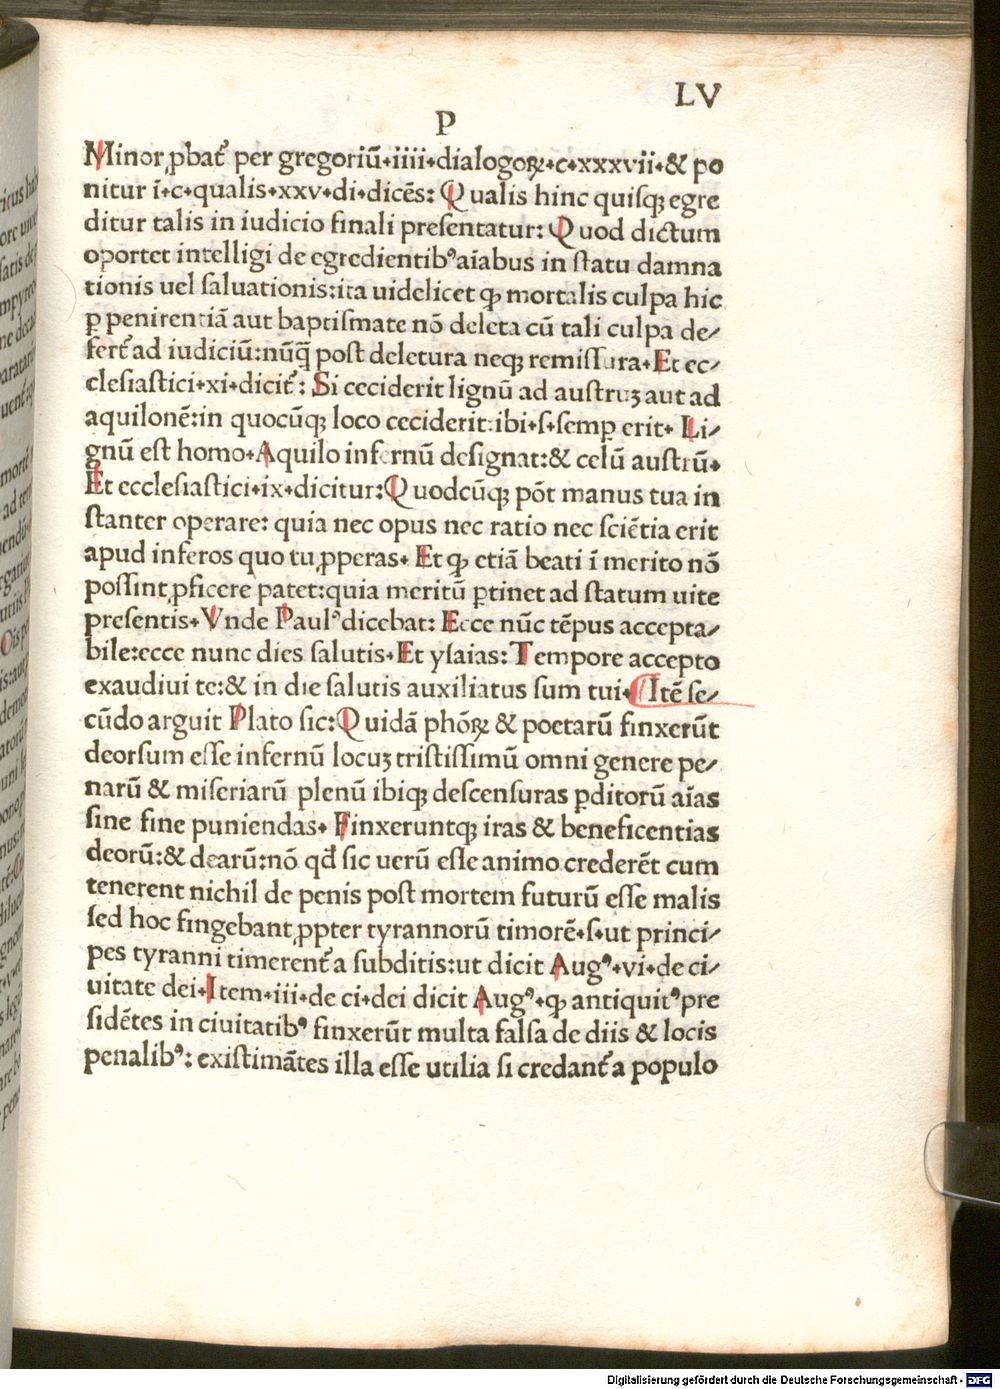 LV
P
Minor ꝓbat᷑ per gregoriū.iiii.dialogoꝝ.c.xxxvii.& po
nitur ī.c.qualis.xxv.di.dicēs: Qualis hinc quisqꝫ egre
ditur talis in iudicio finali preſentatur: Quod dictum
oportet intelligi de egredientibꝰ aīabus in ſtatu damna
tionis uel ſaluationis:ita uidelicet ꝙ mortalis culpa hic
ꝑ penitentiā aut baptiſmate nō deleta cū tali culpa de⸗
fert᷑ ad iudiciū:nūq̄ poſt deletura neqꝫ remiſſura. Et ec⸗
cleſiaſtici.xi.dicit᷑: Si ceciderit lignū ad auſtruꝫ aut ad
aquilonē:in quocūqꝫ loco ceciderit:ibi.ſ.ſemꝑ erit. Li⸗
gnū eſt homo. Aquilo infernū deſignat:& celū auſtrū.
Et eccleſiaſtici.ix.dicitur: Quodcūqꝫ pōt manus tua in
ſtanter operare: quia nec opus nec ratio nec ſciētia erit
apud inferos quo tu ꝓperas. Et ꝙ etiā beati ī merito nō
poſſint ꝓficere patet:quia meritū ꝑtinet ad ſtatum uite
preſentis. Vnde Paulꝰ dicebat: Ecce nūc tēpus accepta⸗
bile:ecce nunc dies ſalutis. Et yſaias: Tempore accepto
exaudiui te:& in die ſalutis auxiliatus ſum tui. ¶Itē ſe⸗
cūdo arguit Plato ſic: Quidā phōꝝ & poetarū finxerūt
deorſum eſſe infernū locuꝫ triſtiſſimū omni genere pe⸗
narū & miſeriarū plenū ibiqꝫ deſcenſuras ꝑditorū aīas
ſine fine puniendas. Finxeruntqꝫ iras & beneficentias
deorū:& dearū:nō qđ ſic uerū eſſe animo crederēt cum
tenerent nichil de penis poſt mortem futurū eſſe malis
ſed hoc fingebant ꝓpter tyrannorū timorē.ſ.ut princi⸗
pes tyranni timerent᷑ a ſubditis:ut dicit Augꝰ.vi.de ci⸗
uitate dei. Item.iii.de ci.dei dicit Augꝰ.ꝙ antiquitꝰ pre
ſidētes in ciuitatibꝰ finxerūt multa falſa de diis & locis
penalibꝰ: exiſtimātes illa eſſe utilia ſi credant᷑ a populo
Digitalisierung gefördert durch die Deutsche Forschungsgemeinschaft - DFG